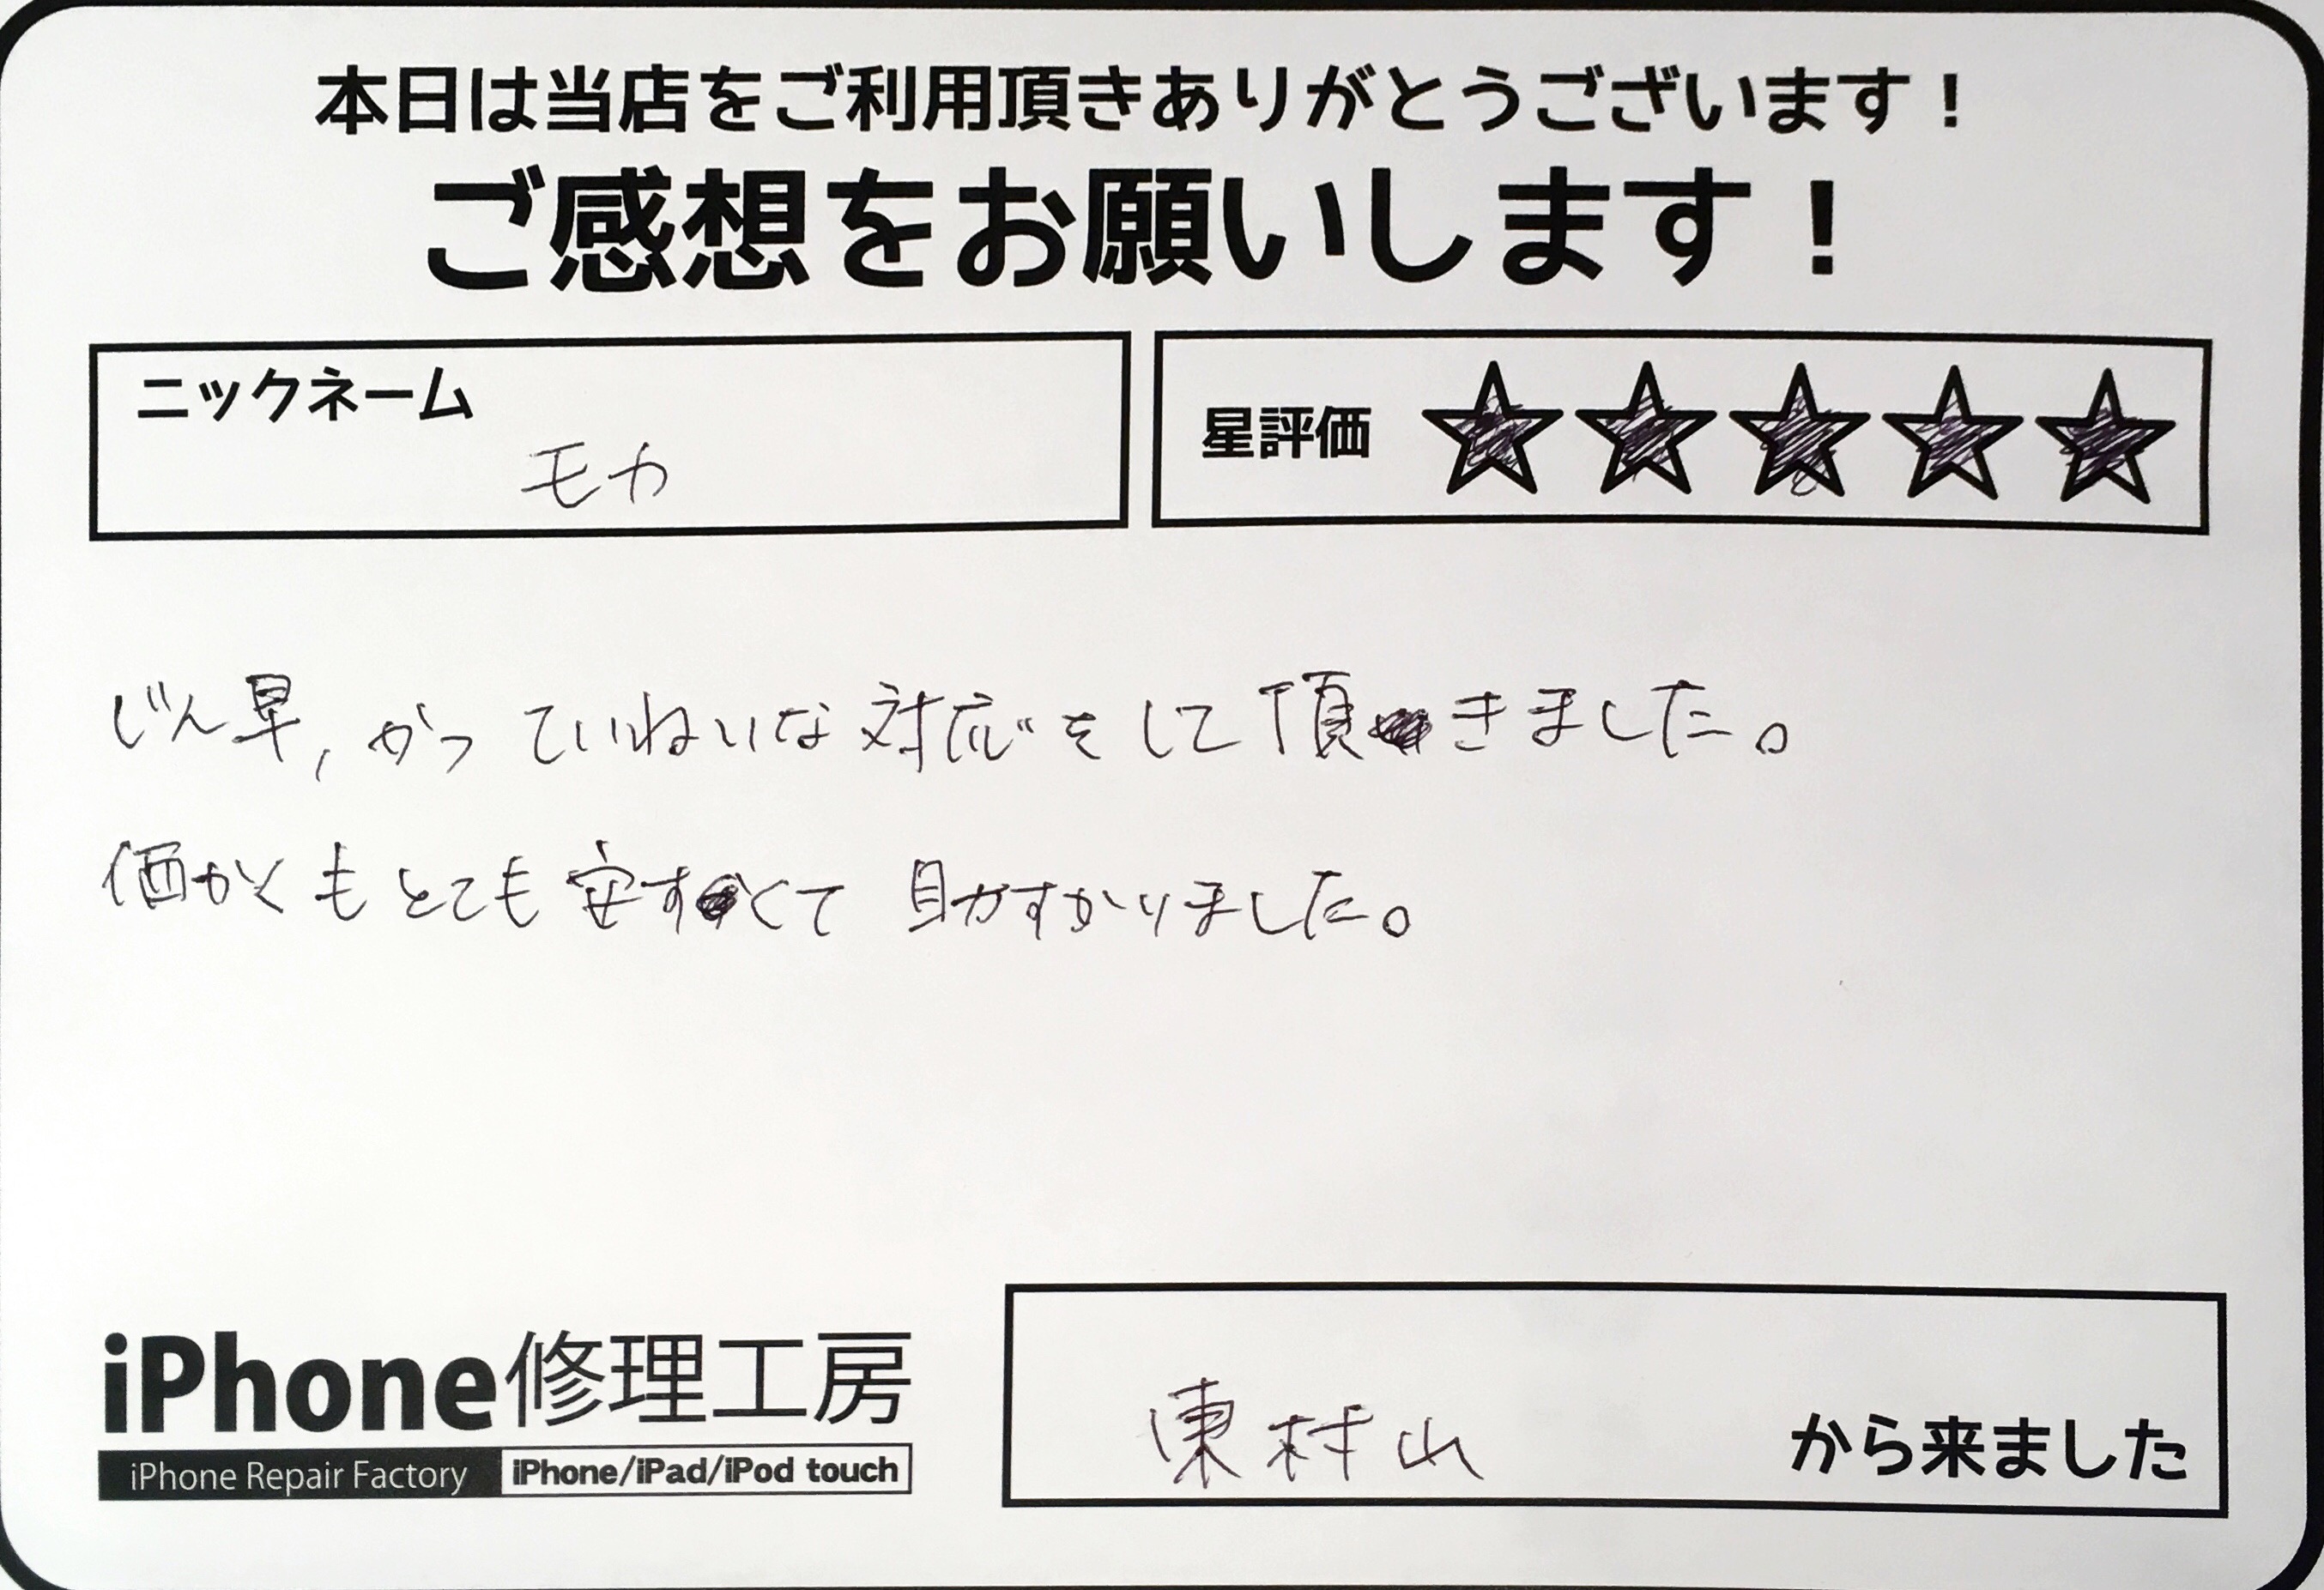 本日は当店をご利用頂きありがとうございます！
ご感想をお願いします！
ニックネーム
モカ
星評価 ★★★★★
じん早、かつ ていねいな対応をして頂きました。
価かくもとても安すくて 助すかりました。
iPhone修理工房
iPhone Repair Factory iPhone/iPad/iPod touch
東村山 から来ました